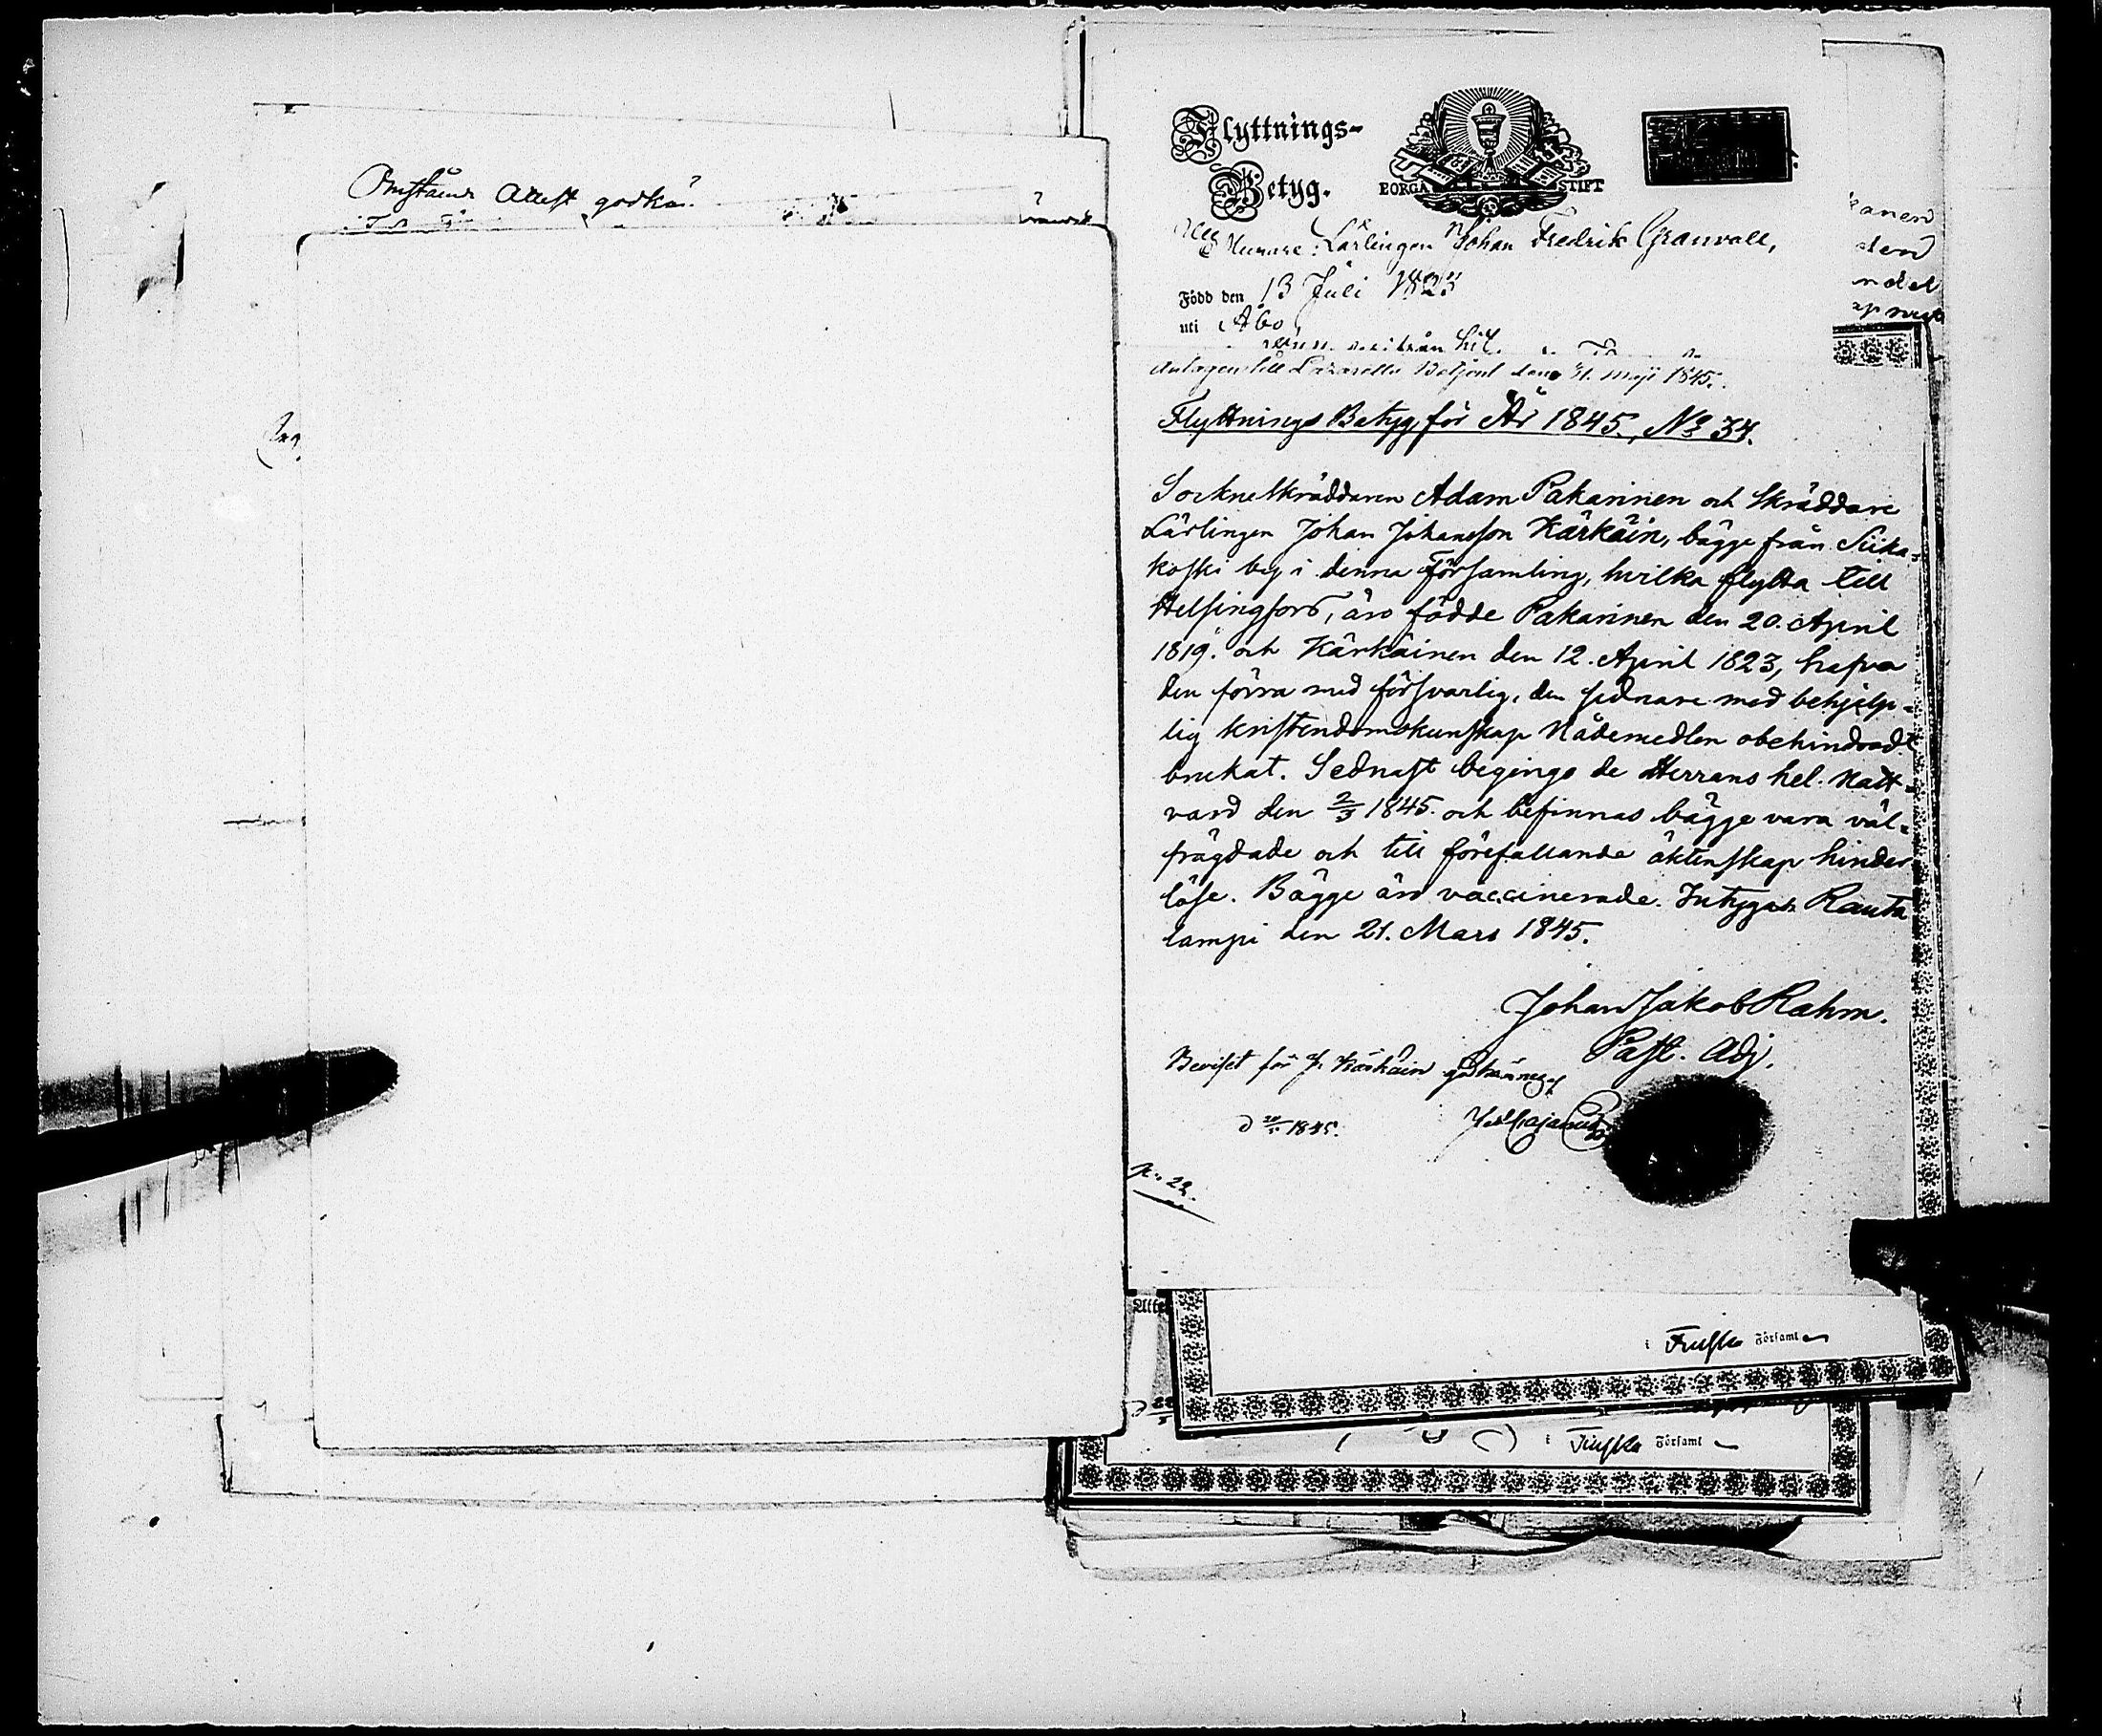 Omstående Attest godkä
Flyttnings-
Betyg.
BORGÅ STIFT
Murare Lärlingen Johan Fredrik Granvall,
Född den 13 Juli 1823
uti Åbo
Antagen till Lazaretts Betjent den 31. Maji 1845.
Flyttnings Betyg för År 1845, No 34.
Socknetskräddaren Adam Pakarinen och Skräddare
Lärlingen Johan Johansson Kärkäin, bägge från Siika-
koski by i denna Församling, hvilka flytta till
Helsingfors, äro födde Pakarinen den 20. April
1819. och Kärkäinen den 12. April 1823, hafva
den förra med försvarlig, den sednare med behjelp-
lig kristendomskunskap Nådemedlen obehindradt
brukat. Sednast begingo de Herrans hel. Natt-
vard den 2/3 1845. och befinnas bägge vara väl-
frägdade och till förefallande äktenskap hinder
löse. Bägge äro vaccinerade. Intygar Rauta
lampi den 21. Mars 1845.
Johan Jakob Rahm.
Past. Adj.
Beviset för J. Kärkäin godkännes
1845.
p. 22.
Attes
i Finska Församl
i Finska Församl
anen
den
ndel